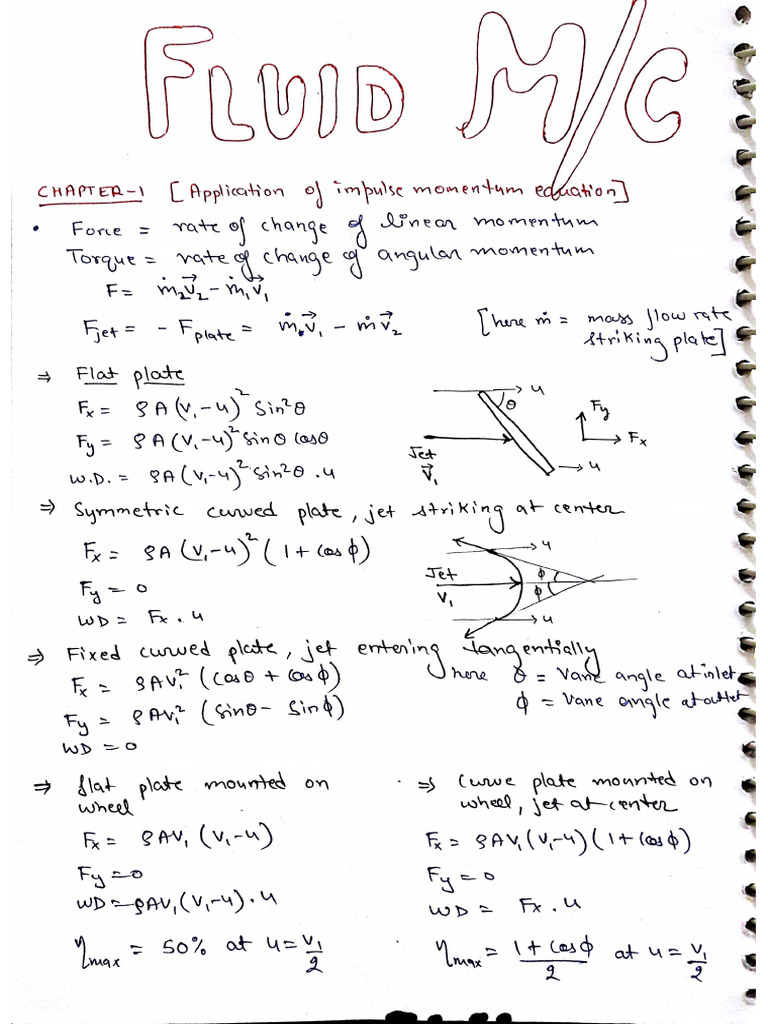 FLUID M/C
CHAPTER-1 [Application of impulse momentum equation]
• Force = rate of change of linear momentum
Torque = rate of change of angular momentum
F = ṁ₂V⃗₂ − ṁ₁V⃗₁
Fjet = − Fplate = ṁ.V⃗₁ − ṁV⃗₂ [here ṁ = mass flow rate
striking plate]
⇒ Flat plate
Fx = ρA(V₁−u)² Sin²θ
Fy = ρA(V₁−u)² Sinθ Cosθ
W.D. = ρA(V₁−u)² Sin²θ . u
u
θ
Jet
V⃗₁
u
Fy
Fx
⇒ Symmetric curved plate, jet striking at center
Fx = ρA(V₁−u)² (1+Cosϕ)
Fy = 0
WD = Fx . u
u
Jet
V₁
ϕ
ϕ
u
⇒ Fixed curved plate, jet entering tangentially
Fx = ρAV₁² (Cosθ + Cosϕ)
Fy = ρAV₁² (Sinθ − Sinϕ)
WD = 0
here θ = Vane angle at inlet
ϕ = Vane angle at outlet
⇒ flat plate mounted on
wheel
Fx = ρAV₁ (V₁−u)
Fy = 0
WD = ρAV₁(V₁−u) . u
ηmax = 50% at u = V₁/2
⇒ Curve plate mounted on
wheel, jet at center
Fx = ρAV₁(V₁−u)(1+Cosϕ)
Fy = 0
WD = Fx . u
ηmax = (1+Cosϕ)/2 at u = V₁/2